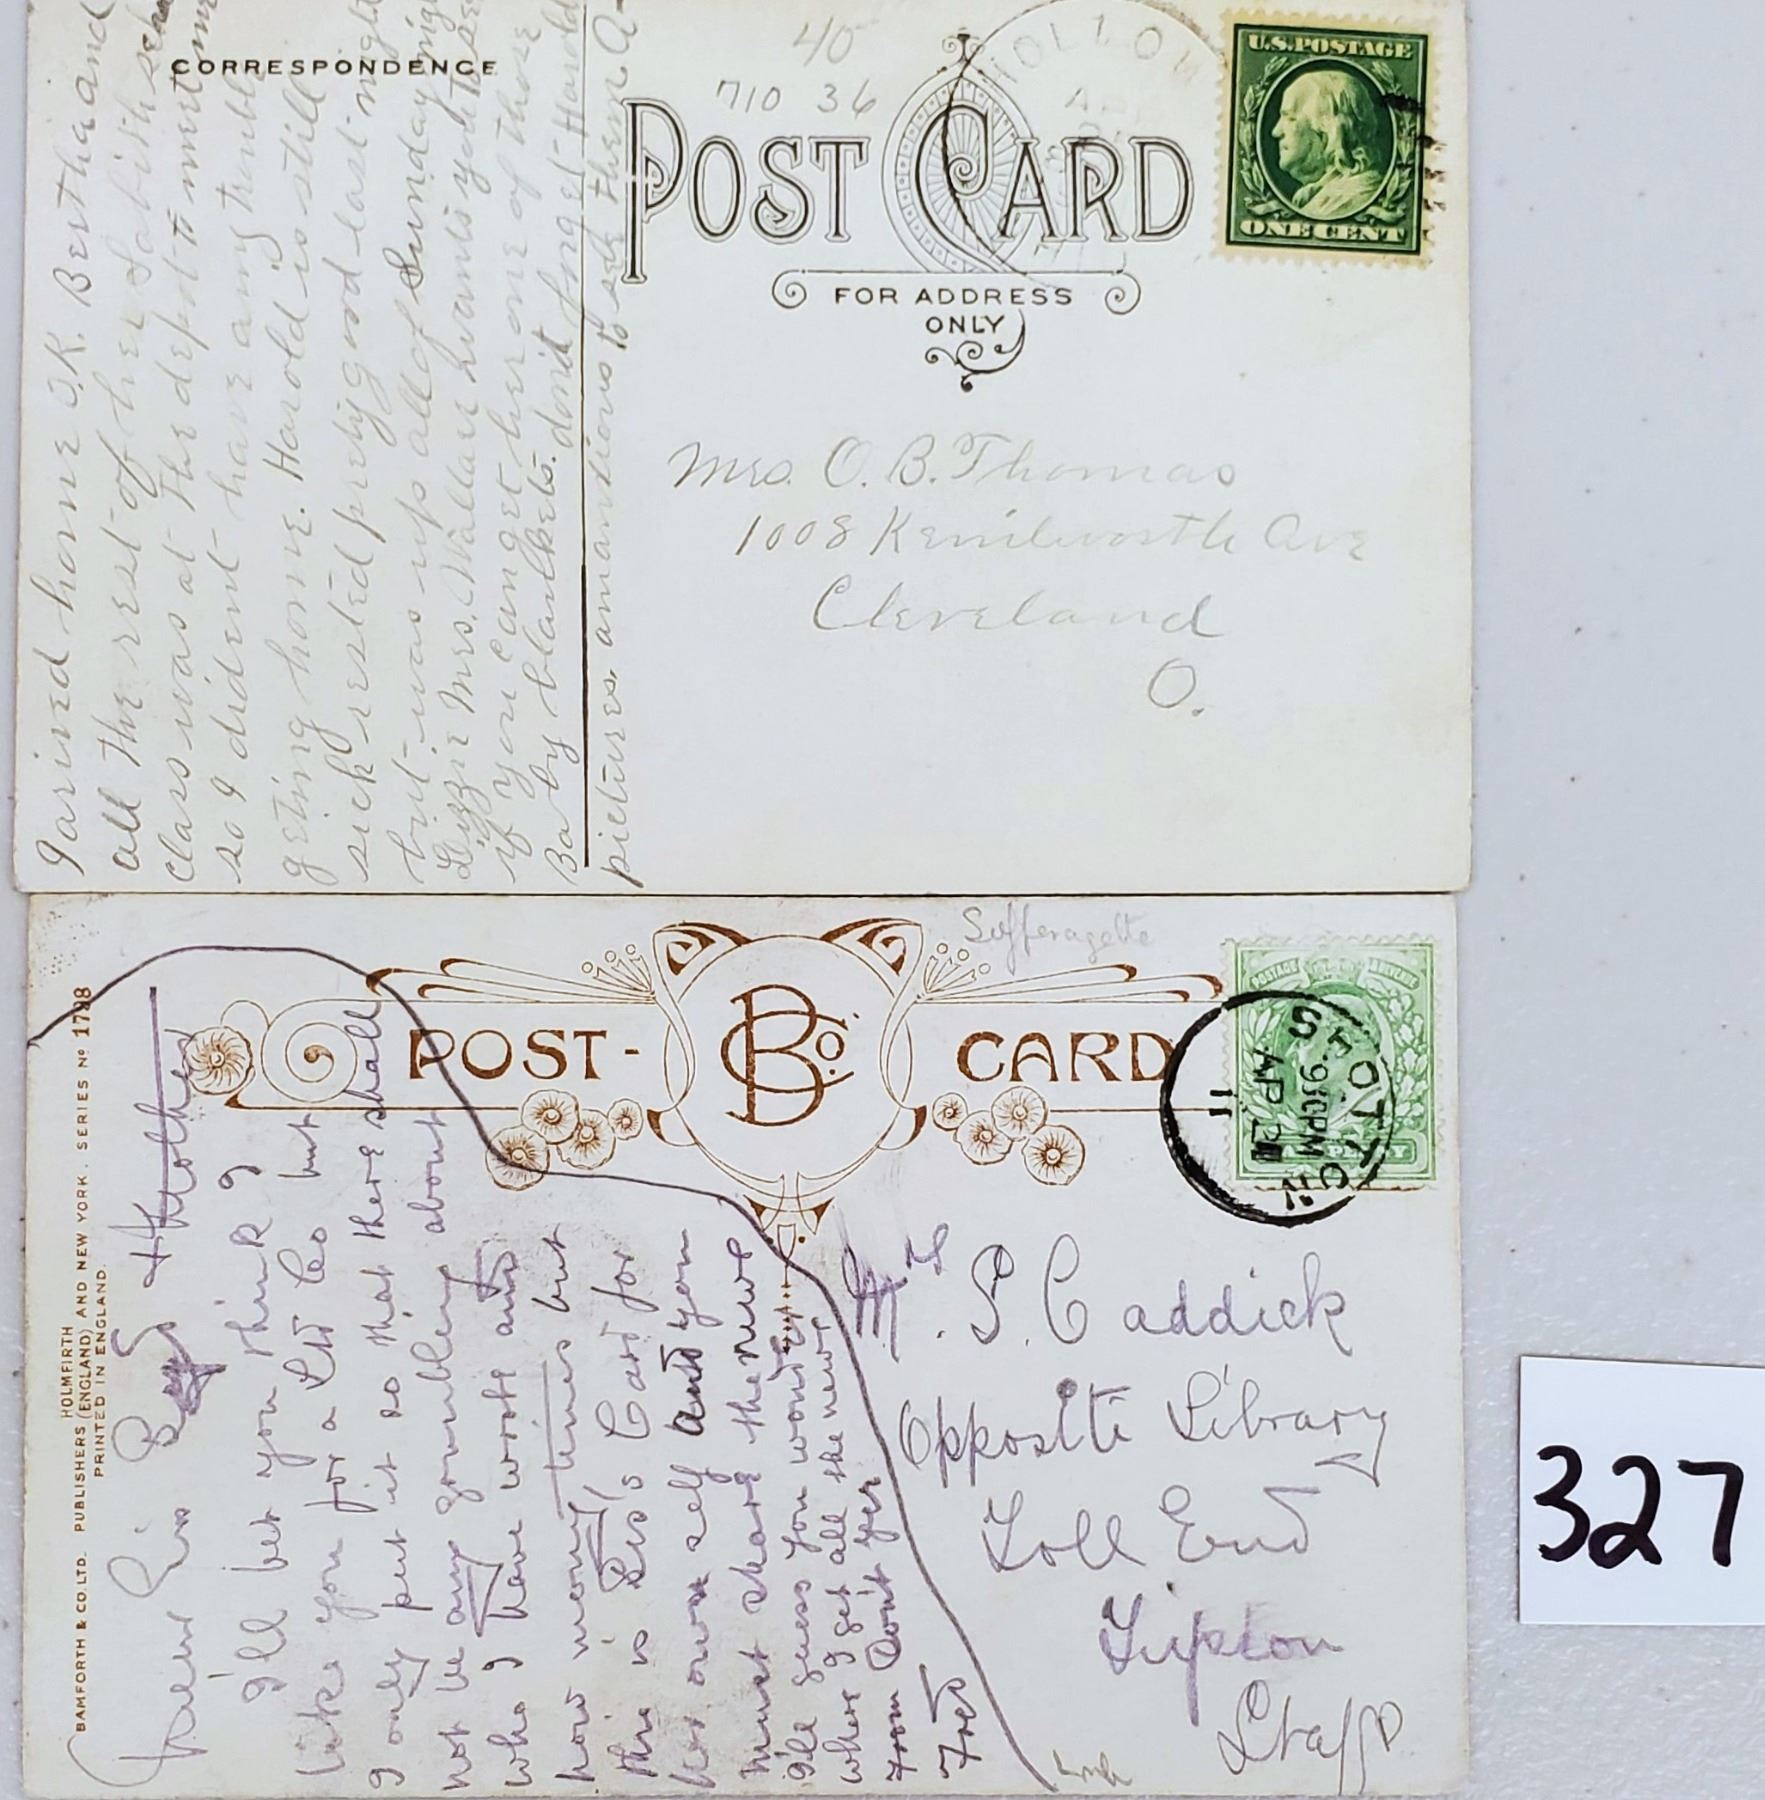 CORRESPONDENCE
I arived home O.K. Bertha and
all the rest of her Sabith
class was at the depot to meet me
so I dident have any trouble
geting home. Harold is still
sick rested prety good last night
but was up all of Sunday
Lizzie Mrs. Wallace wants you to see
if you can get her one of those
Baby blankets. dont forget Harold
pictures.
40
710 36
POST CARD
FOR ADDRESS
ONLY
HOLLOW
U.S. POSTAGE
ONE CENT
Mrs. O. B. Thomas
1008 Kenilworth Ave
Cleveland
O.
BAMFORTH & CO. LTD. PUBLISHERS (ENGLAND) AND NEW YORK. SERIES No 1788
HOLMFIRTH
PRINTED IN ENGLAND.
Sufferagette
POST - CARD
B Co.
POSTAGE REVENUE
9.30PM
AP 2
11
Dear Sis & Mother
I'll bet you think I
take you for a Ltd Co but
I only put it so that there shall
not be any grumbling about
who I have wrote and
how many times but
this is Sis's Card for
her own self and you
must share the news
I'll guess you wonder
where I get all the news
from Don't yer
Fred
Mrs. S. Caddick
Opposite Library
Toll End
Tipton
Staff
327